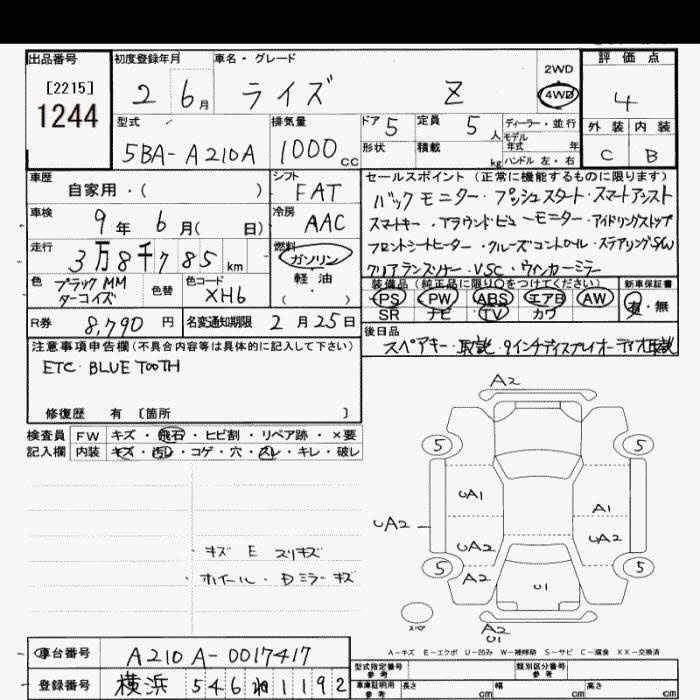 出品番号 初度登録年月 車名・グレード 評価点
[2215] 1244 2 6月 ライズ Z 2WD 4WD 4
外装 内装
C B
型式 排気量 ドア 5 定員 5人 ディーラー・並行
5BA-A210A 1000cc 形状 積載 kg モデル年式 年 ハンドル 左・右
車歴 シフト セールスポイント (正常に機能するものに限ります)
自家用・( ) FAT バックモニター・プッシュスタート・スマートアシスト
車検 9年 6月( 日) 冷房 AAC スマートキー・アラウンドビューモニター・アイドリングストップ
走行 3万8千785km 燃料 ガソリン 軽油 ・( ) フロントシートヒーター・クルーズコントロール・ステアリングSW
クリアランスソナー・VSC・ウィンカーミラー
色 ブラックMM ターコイズ 色替 色コード XH6 装備品 (純正品に限り○をつけてください) 新車保証書
PS PW ABS エアB AW 有・無
SR ナビ TV カワ
R券 8,790円 名変通知期限 2月25日 後日品
スペアキー・取説・9インチディスプレイオーディオ取説
注意事項申告欄 (不具合内容等は具体的に記入して下さい)
ETC・BLUETOOTH
修復歴 有 [箇所 ]
検査員 FW キズ・飛石・ヒビ割・リペア跡・×要
記入欄 内装 キズ・汚レ・コゲ・穴・スレ・キレ・破レ
A2
5 5
UA1 A1
UA2 UA2 UA2
5 A2 U1 5
スペア A2 U1
・キズ E スリキズ
・ホイール・Dミラーキズ
A-キズ E-エクボ U-凹み W-補修跡 S-サビ C-腐食 XX-交換済
車台番号 A210A-0017417 型式指定番号 参考 類別区分番号 参考
登録番号 横浜 546 ね 1192 車庫証明用 参考 長さ cm 幅 cm 高さ cm